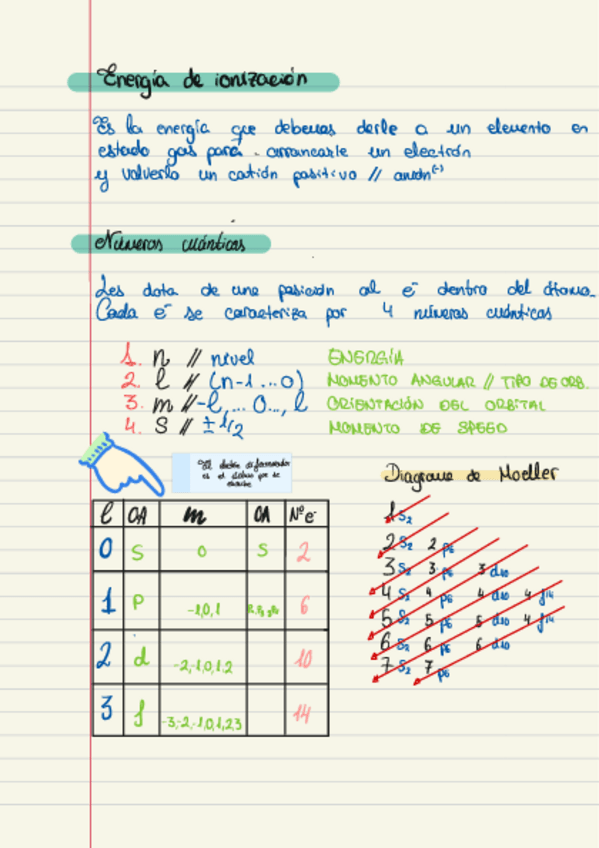 Energía de ionización
Es la energía que debemos darle a un elemento en
estado gas para arrancarle un electrón
y volverlo un catión positivo // anión(-)
Números cuánticos
Les dota de una posición al e- dentro del átomo.
Cada e- se caracteriza por 4 números cuánticos
1. n // nivel ENERGÍA
2. l // (n-1 ... 0) MOMENTO ANGULAR // TIPO DE ORB.
3. m // -l, ... 0..., l ORIENTACIÓN DEL ORBITAL
4. S // ± 1/2 MOMENTO DE SPEED
El electrón diferenciador
es el último que se
Diagrama de Moeller
l OA m OA Nº e-
0 S 0 S 2
1 P -1,0,1 6
2 d -2,-1,0,1,2 10
3 f -3,-2,-1,0,1,2,3 14
1s2
2s2 2p6
3s2 3p6 3d10
4s2 4p6 4d10 4f14
5s2 5p6 5d10 4f14
6s2 6p6 6d10
7s2 7p6